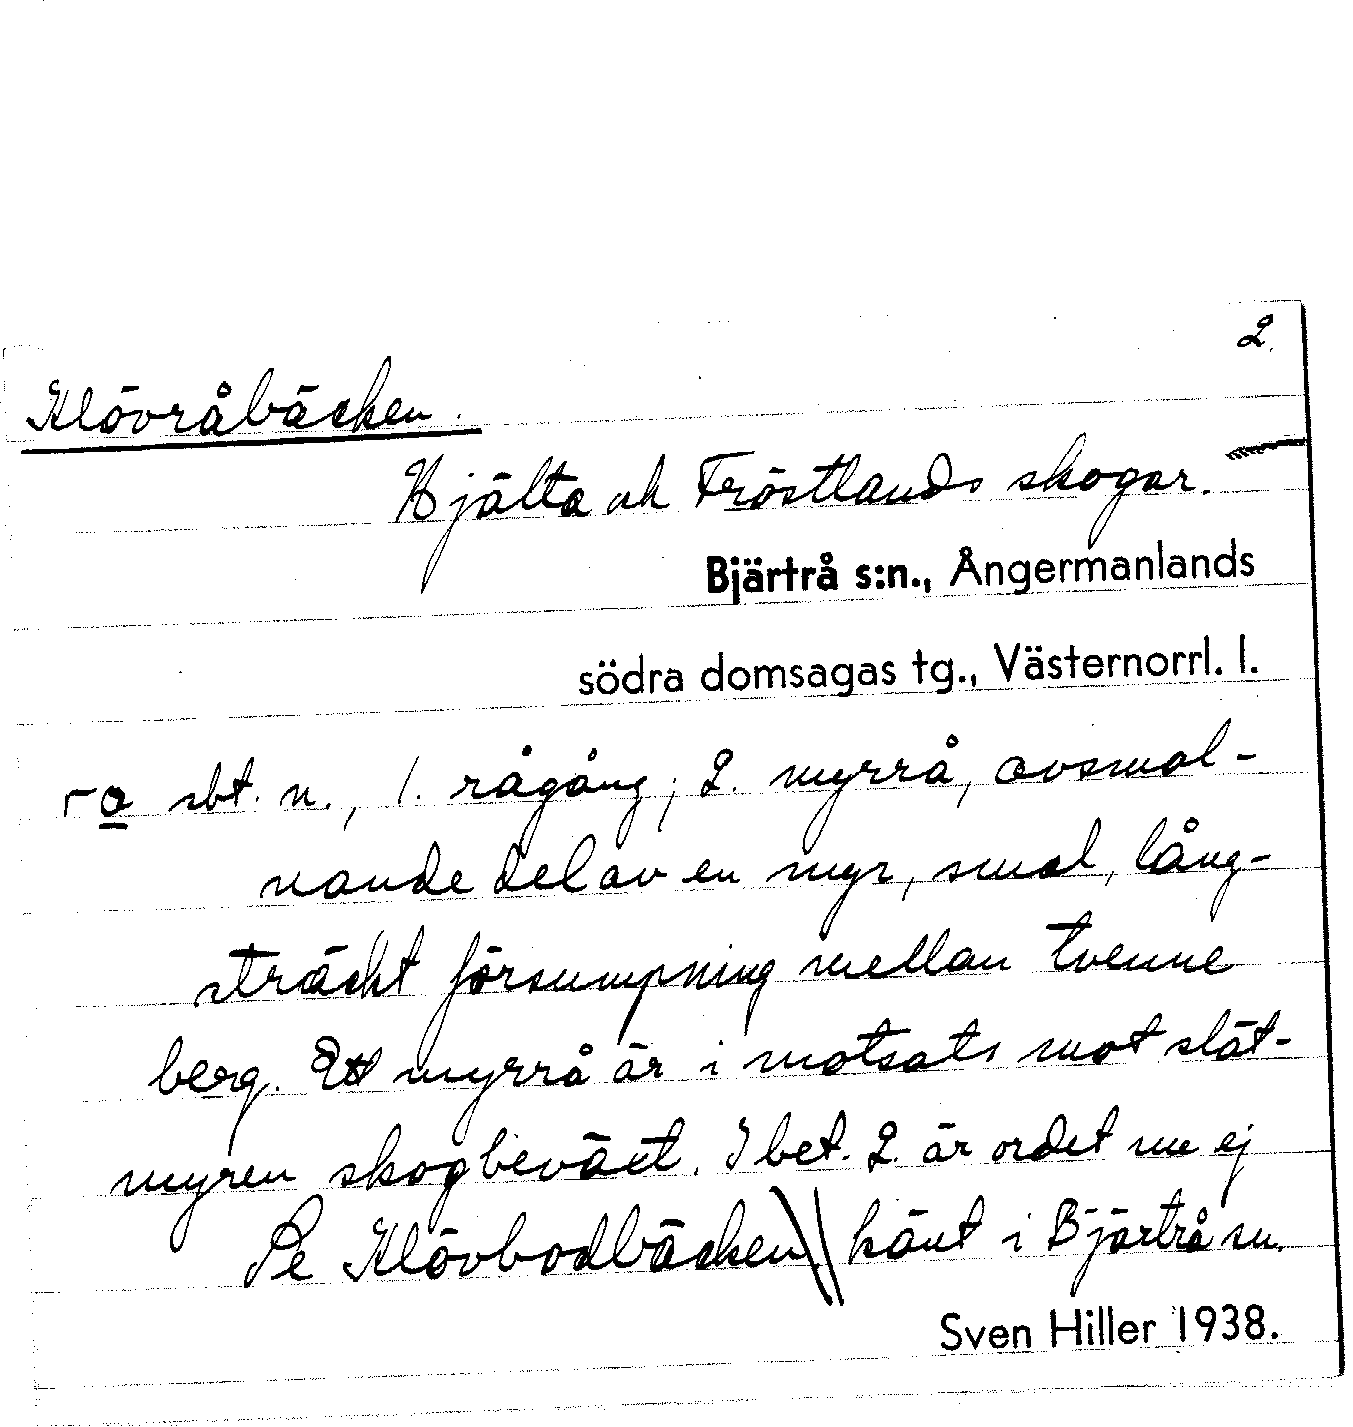 2.
Klövråbäcken.
Hjälta ok Fröstlands skogar.
Bjärtrå s:n., Ångermanlands
södra domsagas tg., Västernorrl. l.
ro sbt. n., 1. rågång; 2. myrrå, avsmal-
nande del av en myr, smal, lång-
sträckt försumpning mellan tvenne
berg. Ett myrrå är i motsats mot slåt-
myren skogbeväxt. I bet. 2. är ordet nu ej
Se Klövbodbäcken. // känt i Bjärtrå sn.
Sven Hiller 1938.